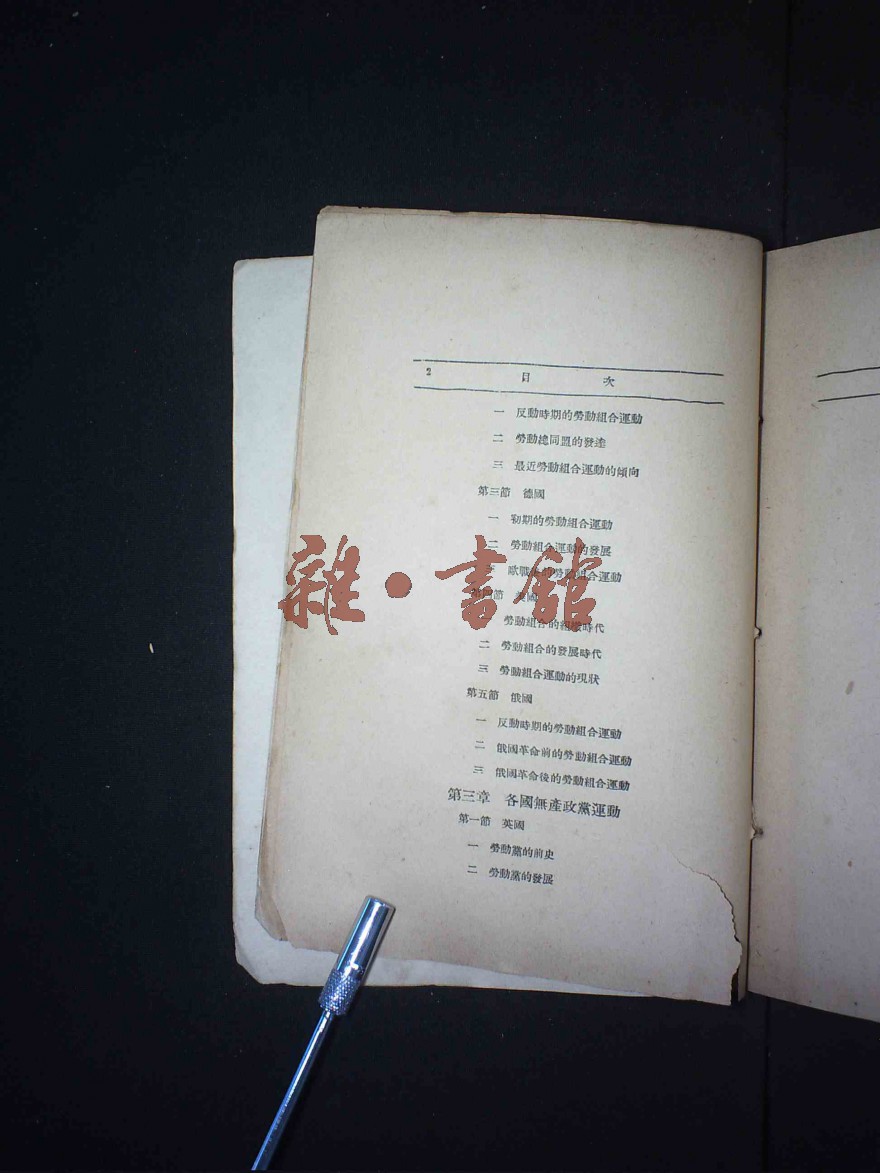 2 目次
一 反動時期的勞動組合運動
二 勞動總同盟的發達
三 最近勞動組合運動的傾向
第三節 德國
一 初期的勞動組合運動
二 勞動組合運動的發展
歐戰 勞動組合運動
第四節 國
勞動組合的 時代
二 勞動組合的發展時代
三 勞動組合運動的現狀
第五節 俄國
一 反動時期的勞動組合運動
二 俄國革命前的勞動組合運動
三 俄國革命後的勞動組合運動
第三章 各國無產政黨運動
第一節 英國
一 勞動黨的前史
二 勞動黨的發展
雜·書館